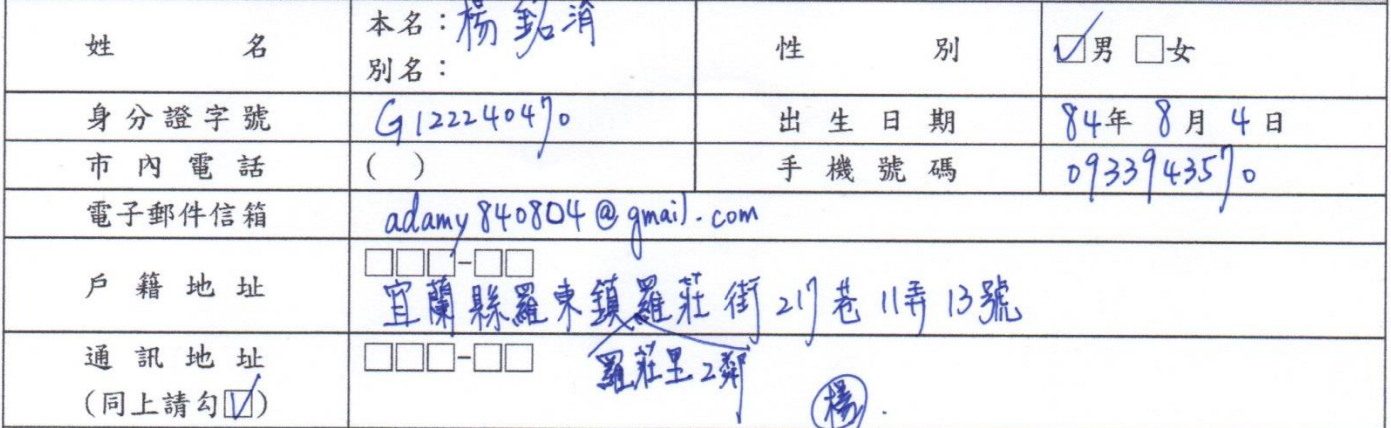 姓名 本名：楊銘淯 性別 ☑男 □女
別名：
身分證字號 G122240470 出生日期 84年8月4日
市內電話 ( ) 手機號碼 0933943570
電子郵件信箱 adamy840804@gmail.com
□□□-□□
戶籍地址 宜蘭縣羅東鎮羅莊街217巷11弄13號
通訊地址 □□□-□□ 羅莊里2鄰
(同上請勾☑) 楊